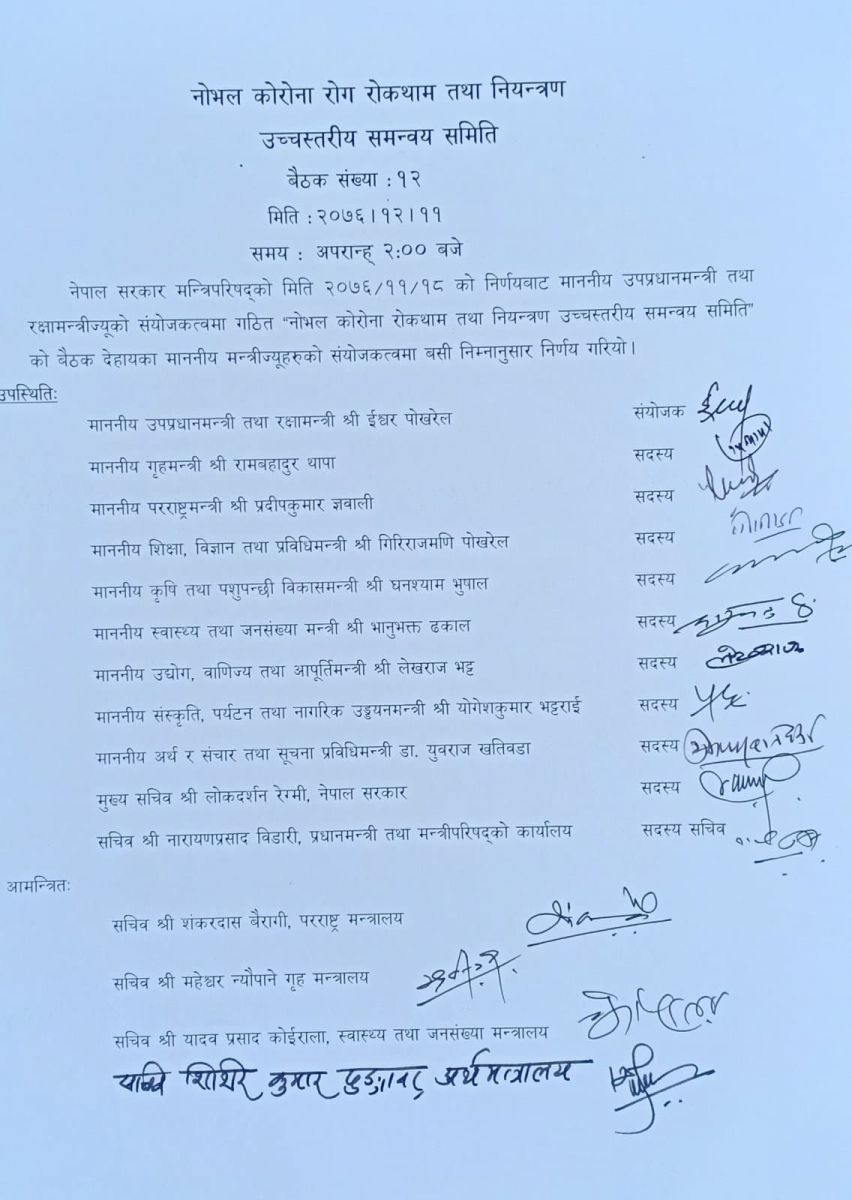 नोभल कोरोना रोग रोकथाम तथा नियन्त्रण
उच्चस्तरीय समन्वय समिति
बैठक संख्या : १२
मिति : २०७६।१२।११
समय : अपरान्ह् २:०० बजे
नेपाल सरकार मन्त्रिपरिषद्को मिति २०७६/११/१८ को निर्णयबाट माननीय उपप्रधानमन्त्री तथा
रक्षामन्त्रीज्यूको संयोजकत्वमा गठित "नोभल कोरोना रोकथाम तथा नियन्त्रण उच्चस्तरीय समन्वय समिति"
को बैठक देहायका माननीय मन्त्रीज्यूहरुको संयोजकत्वमा बसी निम्नानुसार निर्णय गरियो।
उपस्थितिः
माननीय उपप्रधानमन्त्री तथा रक्षामन्त्री श्री ईश्वर पोखरेल संयोजक
माननीय गृहमन्त्री श्री रामबहादुर थापा सदस्य
माननीय परराष्ट्रमन्त्री श्री प्रदीपकुमार ज्ञवाली सदस्य
माननीय शिक्षा, विज्ञान तथा प्रविधिमन्त्री श्री गिरिराजमणि पोखरेल सदस्य
माननीय कृषि तथा पशुपन्छी विकासमन्त्री श्री घनश्याम भुषाल सदस्य
माननीय स्वास्थ्य तथा जनसंख्या मन्त्री श्री भानुभक्त ढकाल सदस्य
माननीय उद्योग, वाणिज्य तथा आपूर्तिमन्त्री श्री लेखराज भट्ट सदस्य
माननीय संस्कृति, पर्यटन तथा नागरिक उड्डयनमन्त्री श्री योगेशकुमार भट्टराई सदस्य
माननीय अर्थ र संचार तथा सूचना प्रविधिमन्त्री डा. युवराज खतिवडा सदस्य
मुख्य सचिव श्री लोकदर्शन रेग्मी, नेपाल सरकार सदस्य
सचिव श्री नारायणप्रसाद विडारी, प्रधानमन्त्री तथा मन्त्रीपरिषद्को कार्यालय सदस्य सचिव
आमन्त्रितः
सचिव श्री शंकरदास बैरागी, परराष्ट्र मन्त्रालय
सचिव श्री महेश्वर न्यौपाने गृह मन्त्रालय
सचिव श्री यादव प्रसाद कोईराला, स्वास्थ्य तथा जनसंख्या मन्त्रालय
शिशिर कुमार अर्थमन्त्रालय